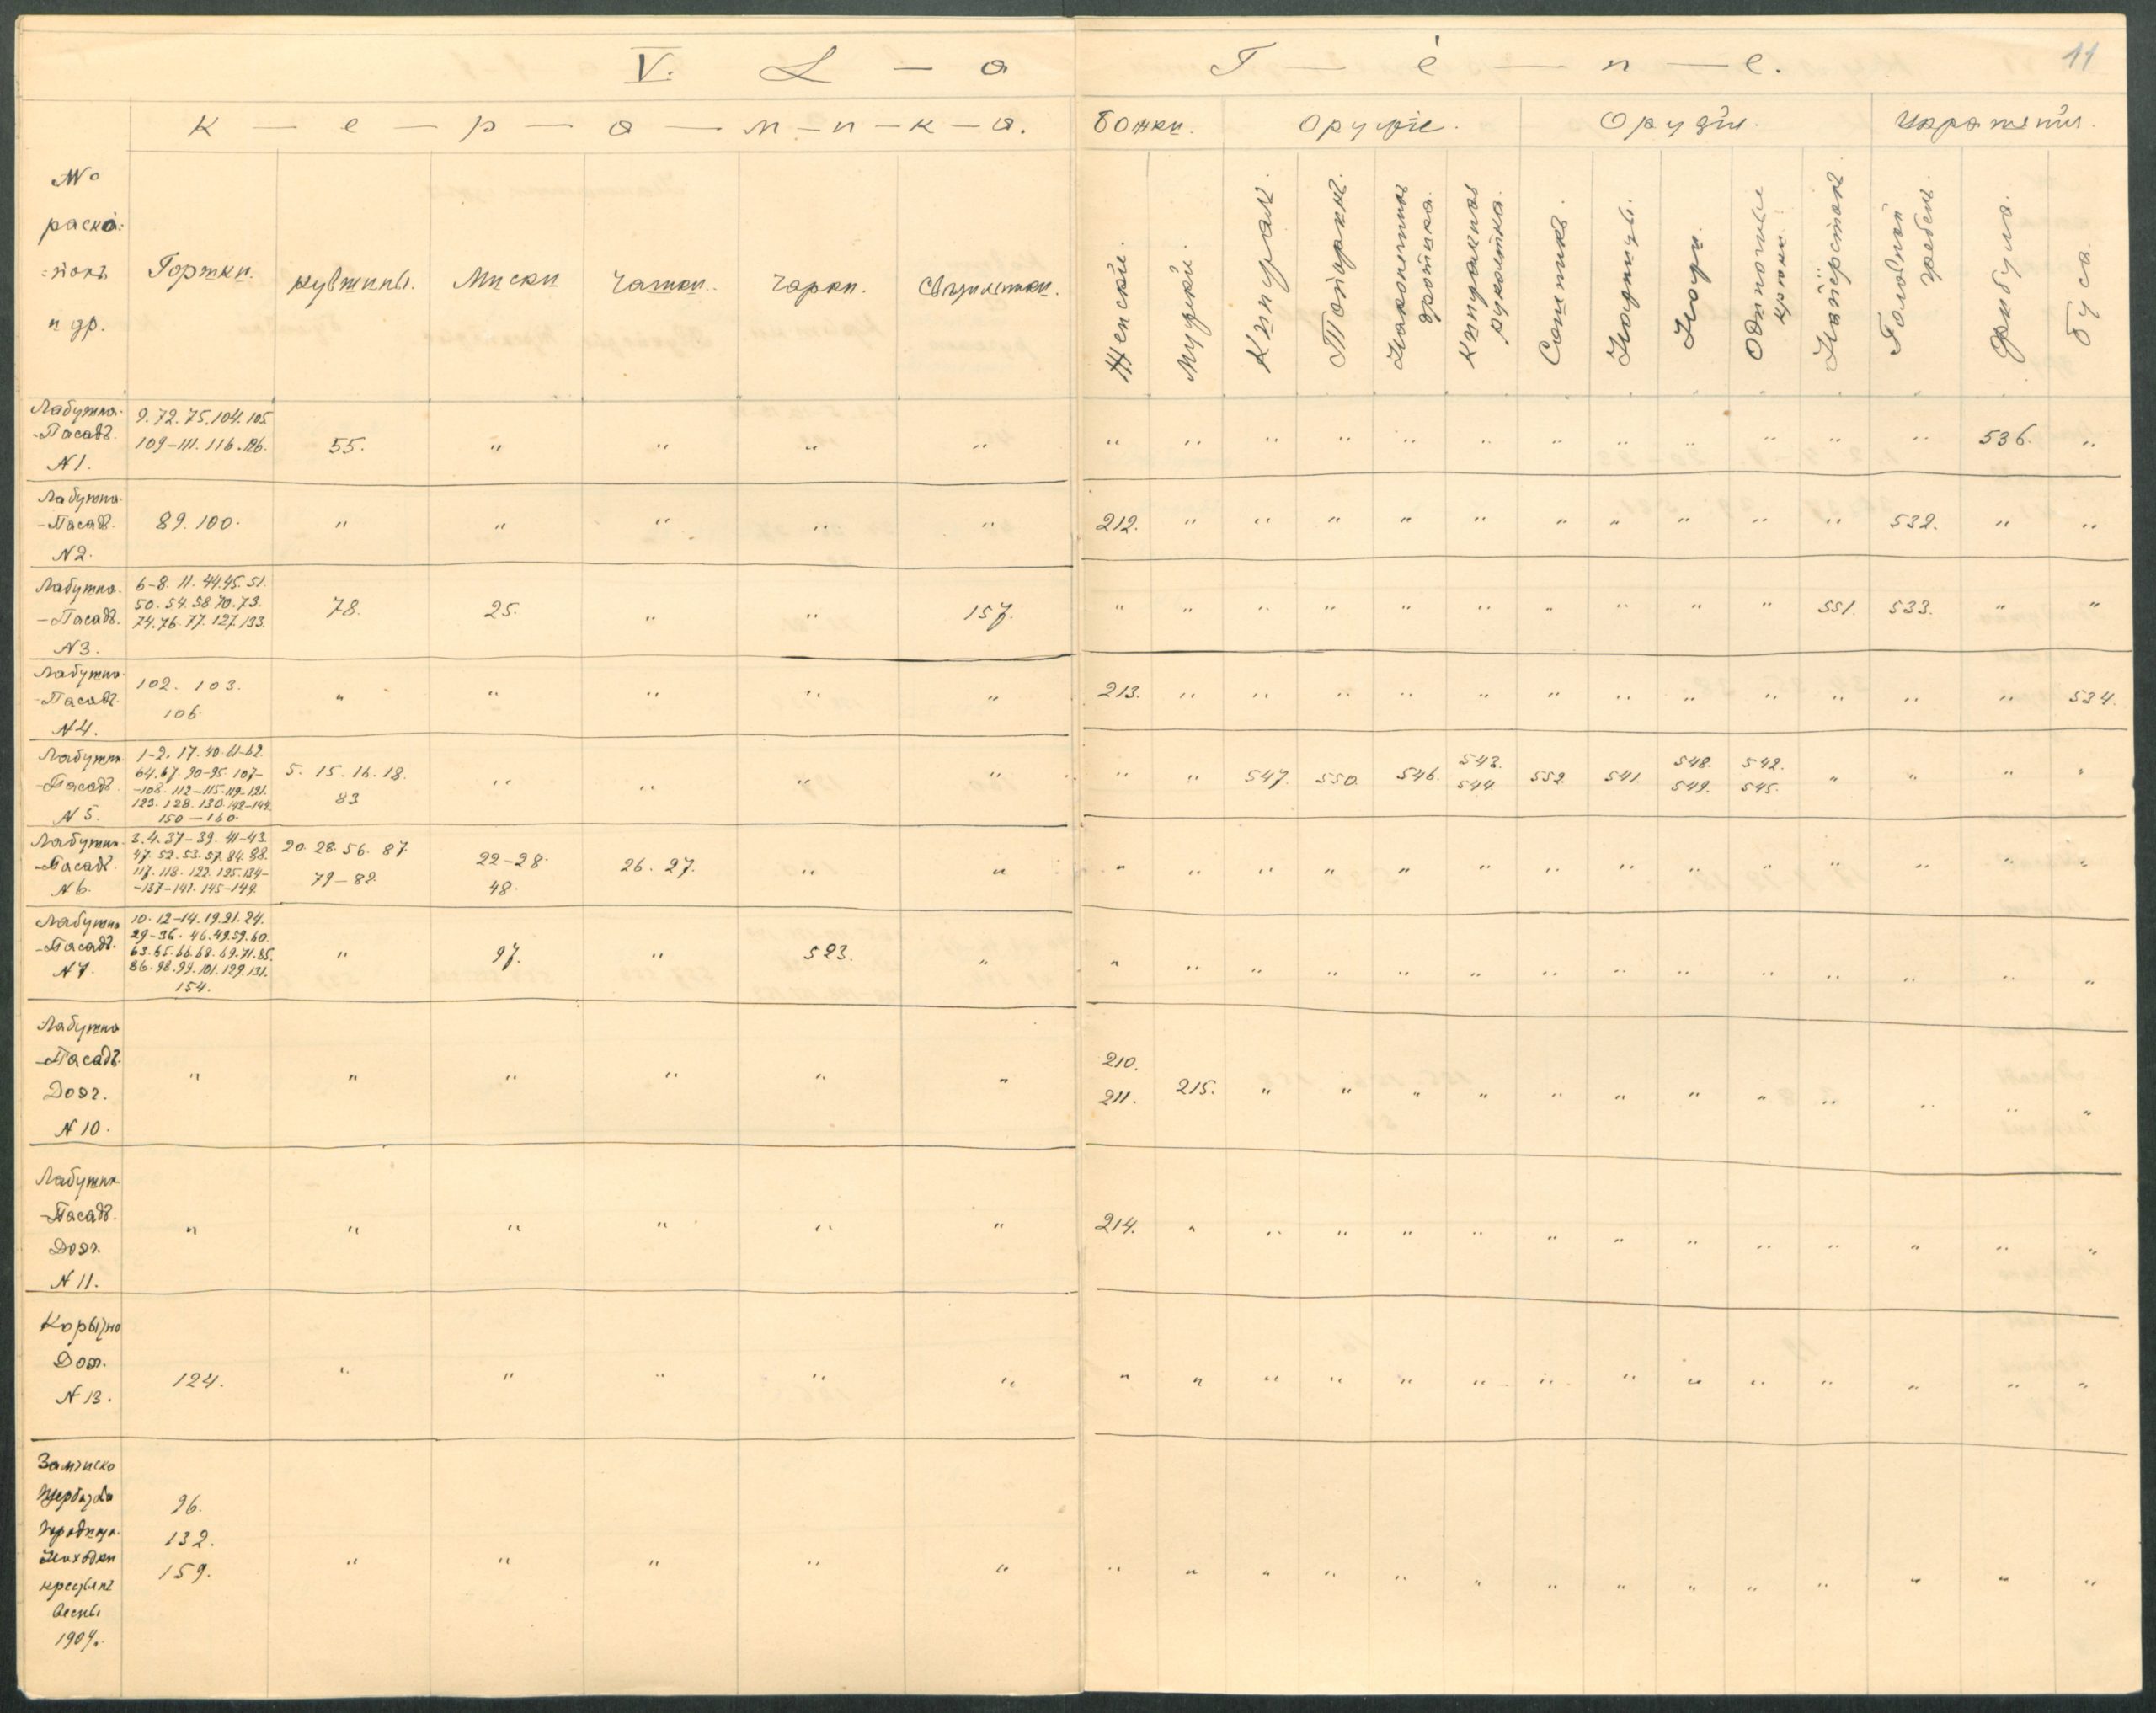 V. L — a T — è — n — e. 11
К — е — р — а — м — и — к — а. Божки. Оружіе. Орудія. Украшенія.
№
раско=
=покъ
и др.
Горшки. Кувшины. Миски Чашки. Чарки. Свѣтильники.
Женскіе. Мужскіе. Кинжалъ. Топорикъ. Наконечникъ
дротика. Кинжальная
рукоятка. Сошникъ. Ножницы. Ножи. Напёрстокъ. Головной
гребень. Фибула. Буса.
Лабушна-
-Пасадъ.
N1.
9. 72. 75. 104. 105.
109-111. 116. 126.
55. " " " " " " " " " " " " " " " " 536. "
Лабушна-
-Пасадъ.
N2.
89. 100. " " " " " 212. " " " " " " " " " " 532. " "
Лабушна-
-Пасадъ.
N3.
6-8. 11. 44.45. 51.
50. 54. 58. 70. 73.
74. 76. 77. 127. 133.
78. 25. " " 157. " " " " " " " " " " 551. 533. " "
Лабушна-
-Пасадъ.
N4.
102. 103.
106.
" " " " " 213. " " " " " " " " " " " " 534.
Лабушна-
-Пасадъ.
N5.
1-2. 17. 40. 61-62.
64. 67. 90-95. 107-
-108. 112-115. 119-121.
123. 128. 130. 142-144.
150-160.
5. 15. 16. 18.
83
" " " " " " 547. 550. 546. 543.
544. 552. 541. 548.
549. 542.
545. " " " "
Лабушна-
-Пасадъ.
N6.
3. 4. 37-39. 41-43.
47. 52. 53. 57. 84. 88.
117. 118. 122. 125. 134-
-137-141. 145-149.
20. 28. 56. 87.
79-82.
22-28.
48.
26. 27. " " " " " " " " " " " " " " " "
Лабушна
-Пасадъ.
N7.
10. 12-14. 19. 21. 24.
29-36. 46. 49. 59. 60.
63. 65. 66. 68. 69. 71. 85.
86. 98. 99. 101. 129. 131.
154.
" 97. " 523. " " " " " " " " " " " " " " "
Лабушна
-Пасадъ.
N10.
" " " " " " 210.
211. 215. " " " " " " " " " " " "
Лабушна
-Пасадъ.
N11.
" " " " " " 214. " " " " " " " " " " " " "
N13.
124. " " " " " " " " " " " " " " " " " " "
Находки
крестьянъ
весны
1907.
96.
132.
159.
" " " " " " " " " " " " " " " " " " "